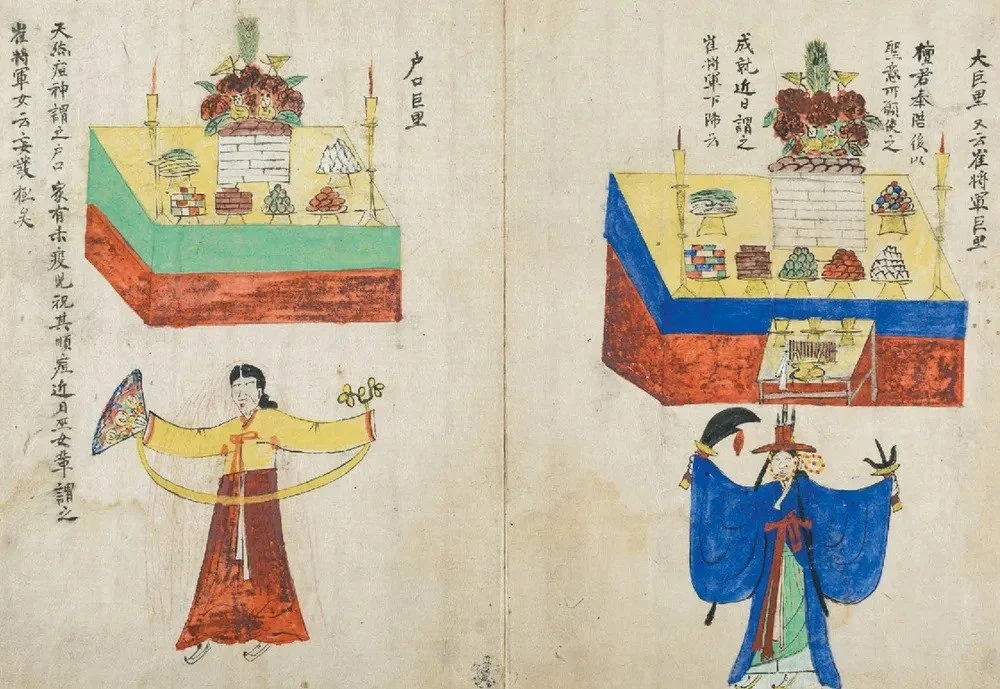 大巨里 又云崔將軍巨里
檀君奉階後以
聖意所願使之
成就近日謂之
崔將軍下降云
户口巨里
天然痘神謂之户口 家有未疫兒祝其順痘近日巫女輩謂之
崔將軍女云妄發極矣